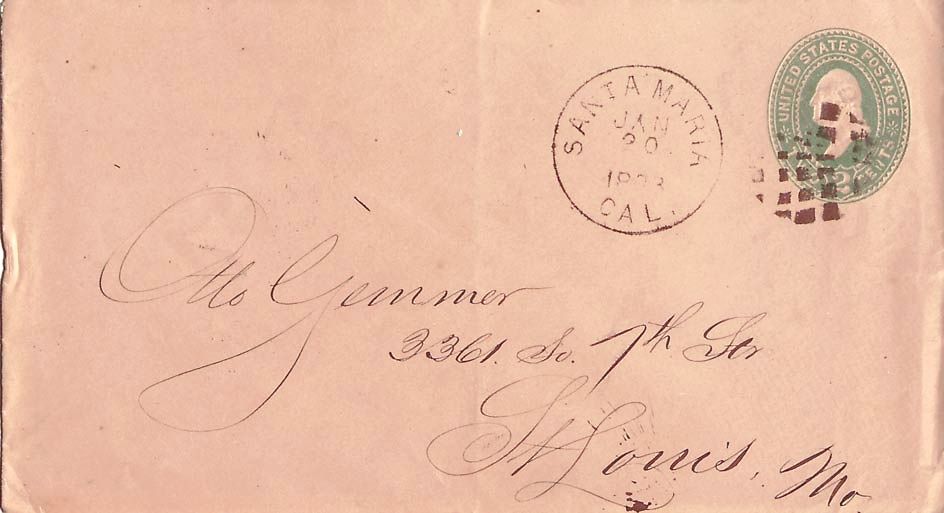 SANTA MARIA
JAN
20
CAL.
UNITED STATES POSTAGE
2 CENTS
Otto Gemmer
3361. So. 7th Str
St Louis, Mo.